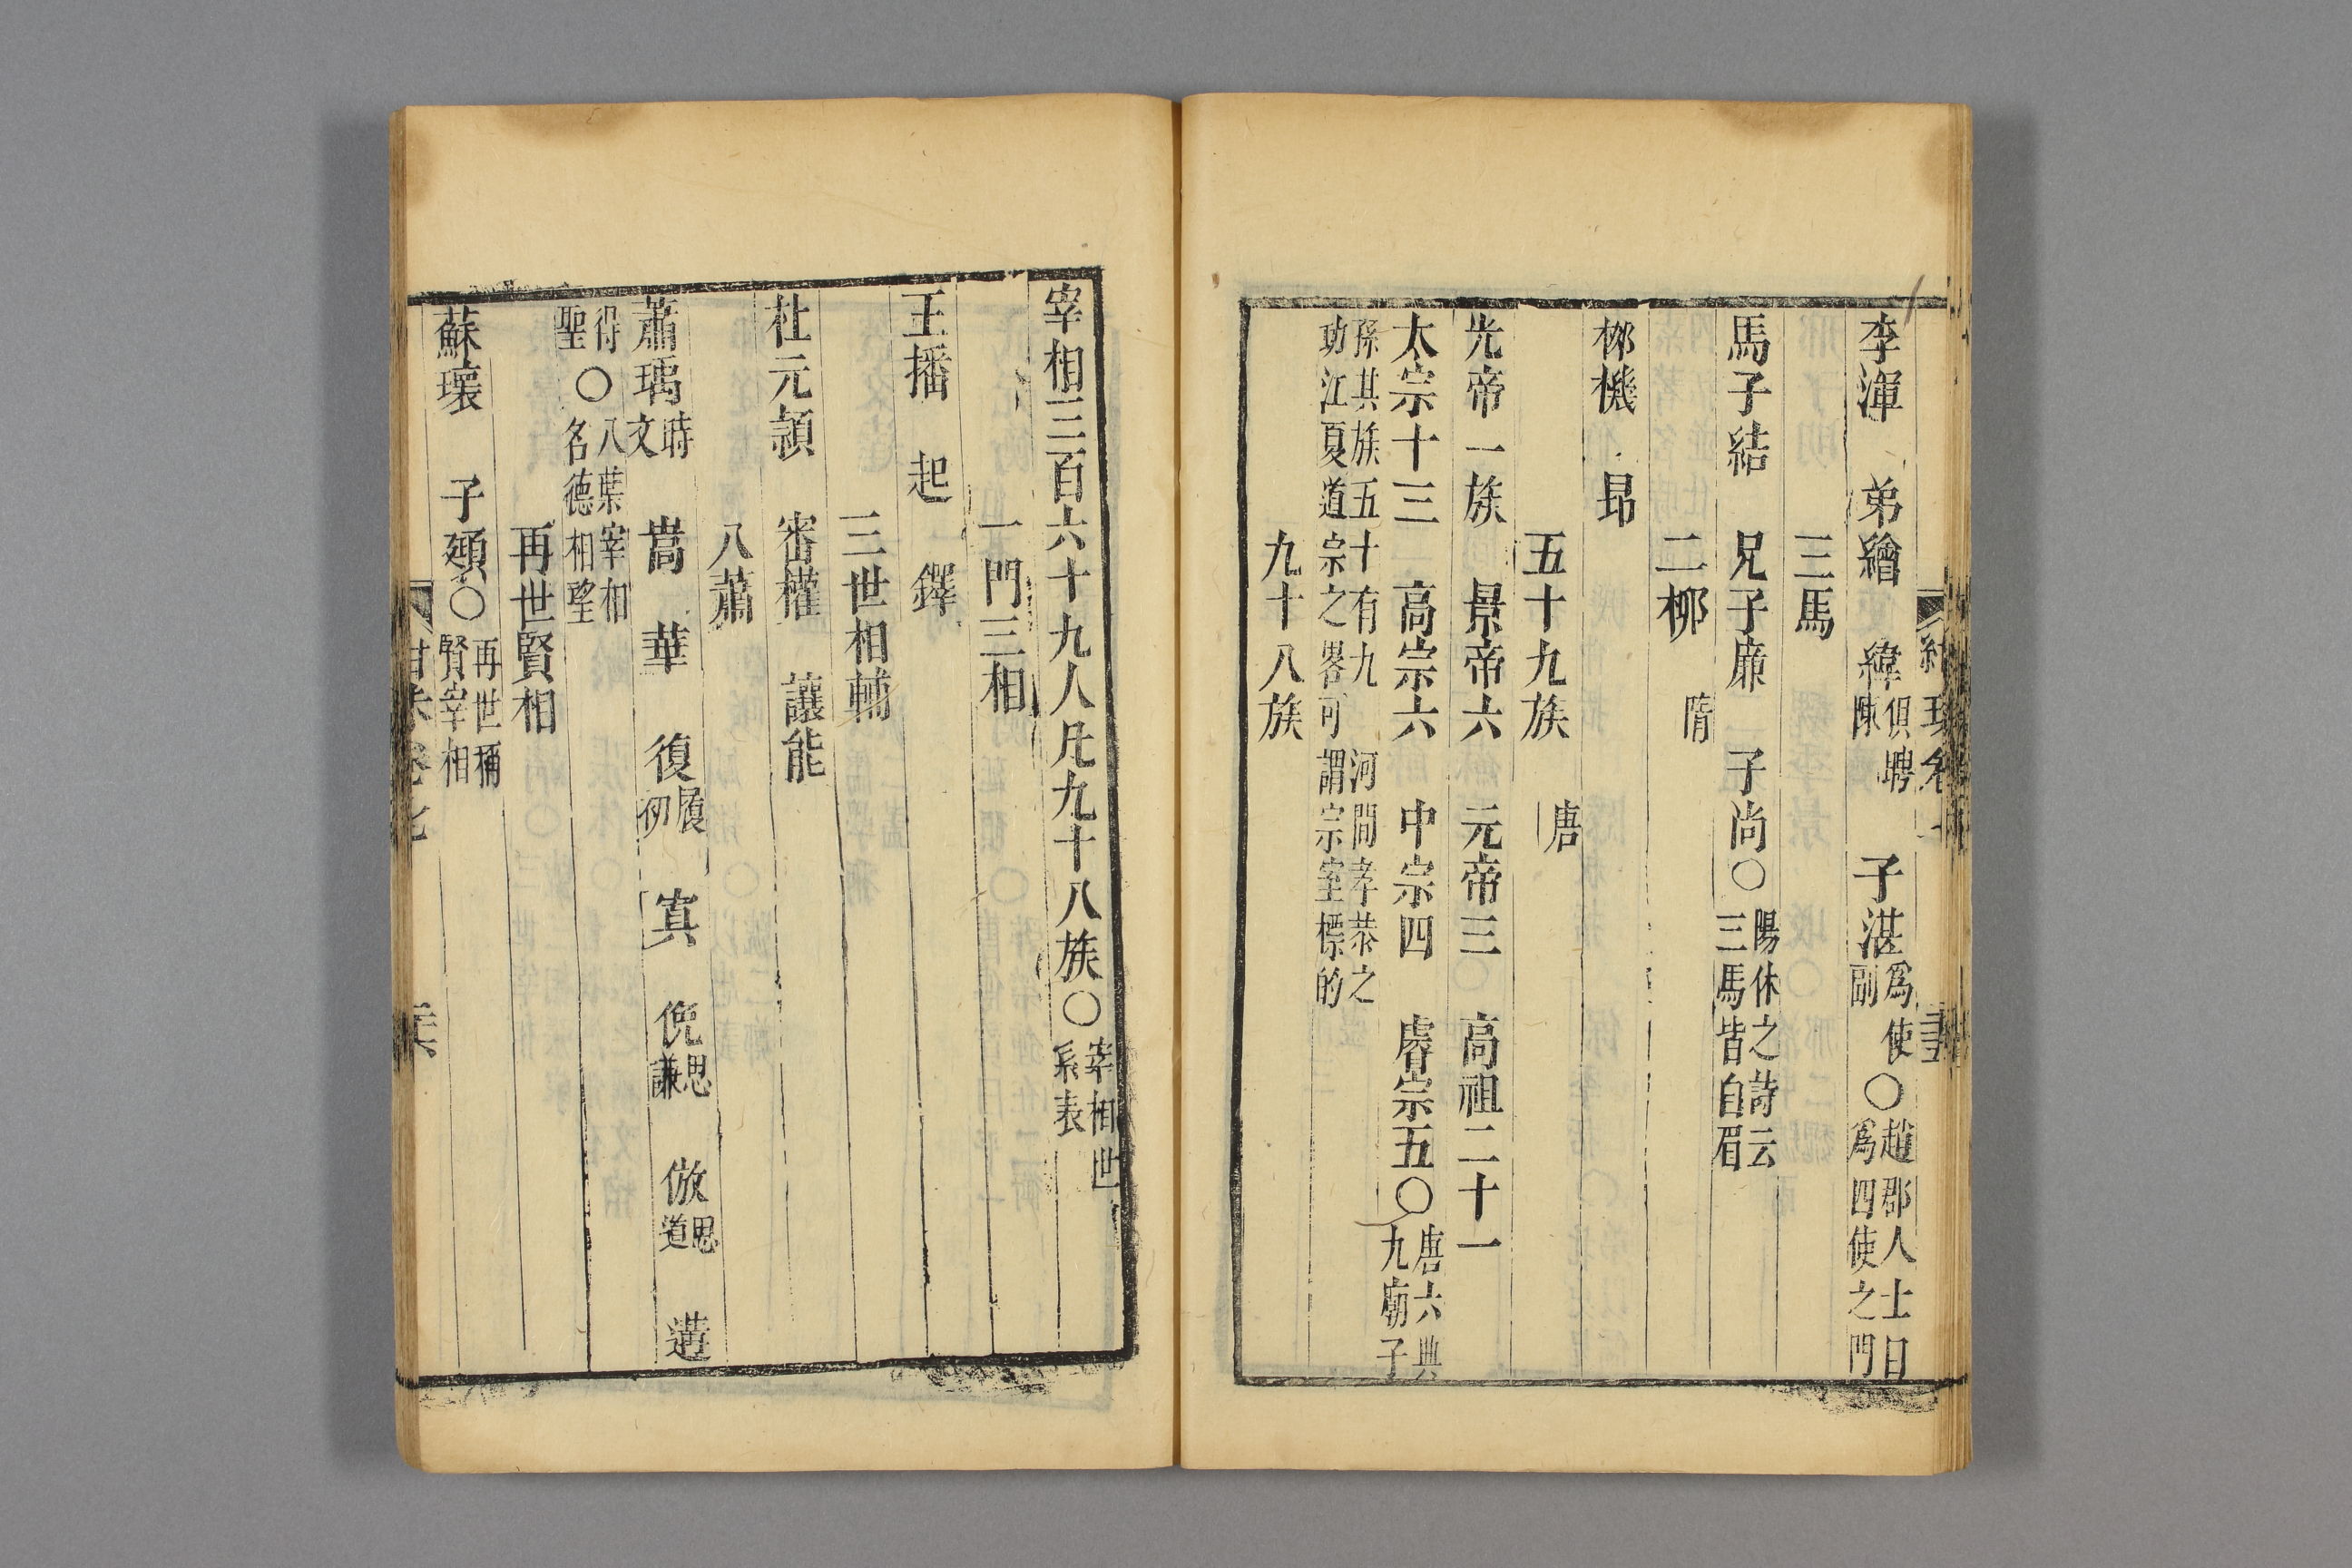 李渾　弟繪　緯俱聘陳　子湛爲使副○趙郡人士曰爲四使之門
三馬
馬子結　兄子廉　子尚○陽休之詩云三馬皆白眉
二柳　隋
柳機　昻
五十九族　唐
光帝一族　景帝六　元帝三　高祖二十一
太宗十三　高宗六　中宗四　睿宗五○唐六典九廟子
孫其族五十有九　河間孝恭之
功江夏道宗之畧可謂宗室標的
九十八族
宰相三百六十九人凡九十八族○宰相世系表
一門三相
王播　起　鐸
三世相輔
杜元頴　審權　讓能
八蕭
蕭瑀時文　嵩　華　復履初　寘　俛思謙　倣思道　遘
得聖○八葉宰相名德相望
再世賢相
蘇瓌　子頲○再世稱賢宰相